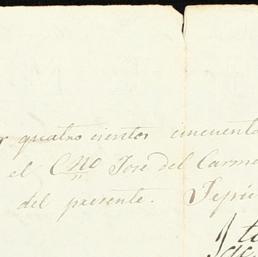 quatro cientos cincuenta
el C.no José del Carme
del presente.